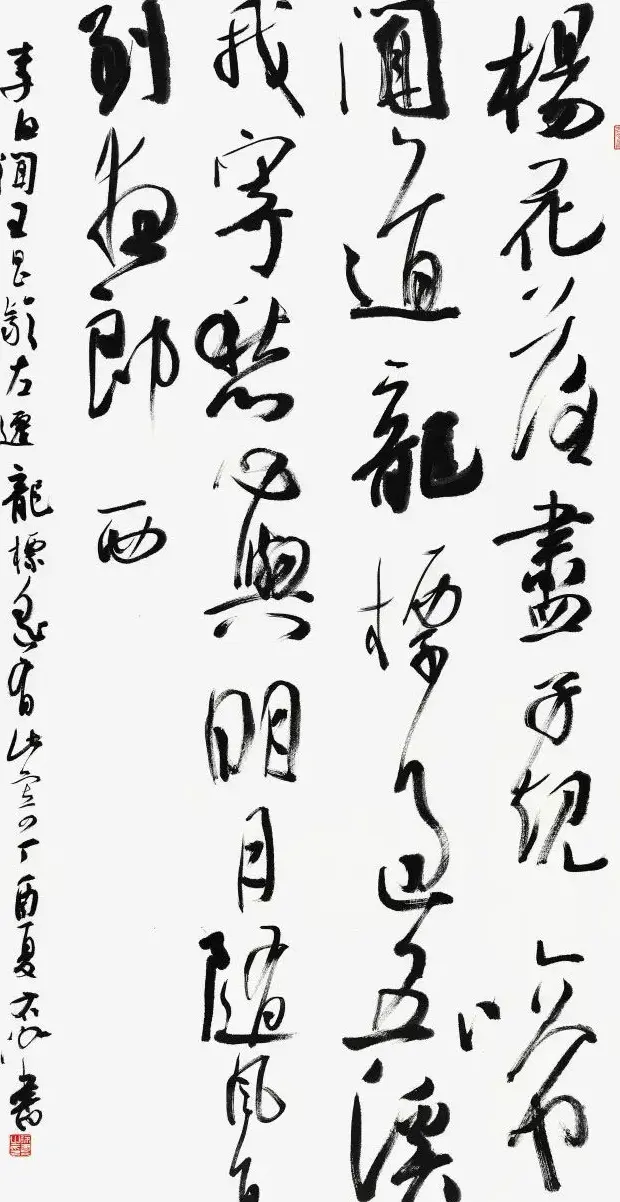 楊花落盡子規啼
聞道龍標過五溪
我寄愁心與明月隨風直
到夜郎西
李白聞王昌齡左遷龍標遙有此寄丁酉夏書